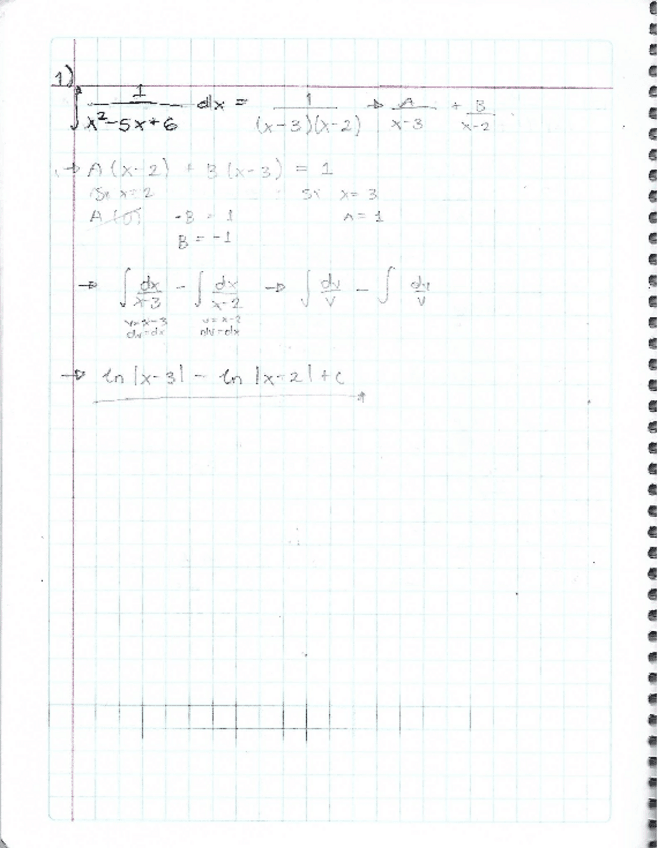 1)
∫ 1/(x²-5x+6) dx = 1/((x-3)(x-2)) → A/(x-3) + B/(x-2)
→ A(x-2) + B(x-3) = 1
Si x=2 Si x=3
A(0) -B = 1 A=1
B = -1
→ ∫ dx/(x-3) - ∫ dx/(x-2) → ∫ dv/v - ∫ dv/v
v=x-3 v=x-2
dv=dx dv=dx
→ ln|x-3| - ln|x-2| + C